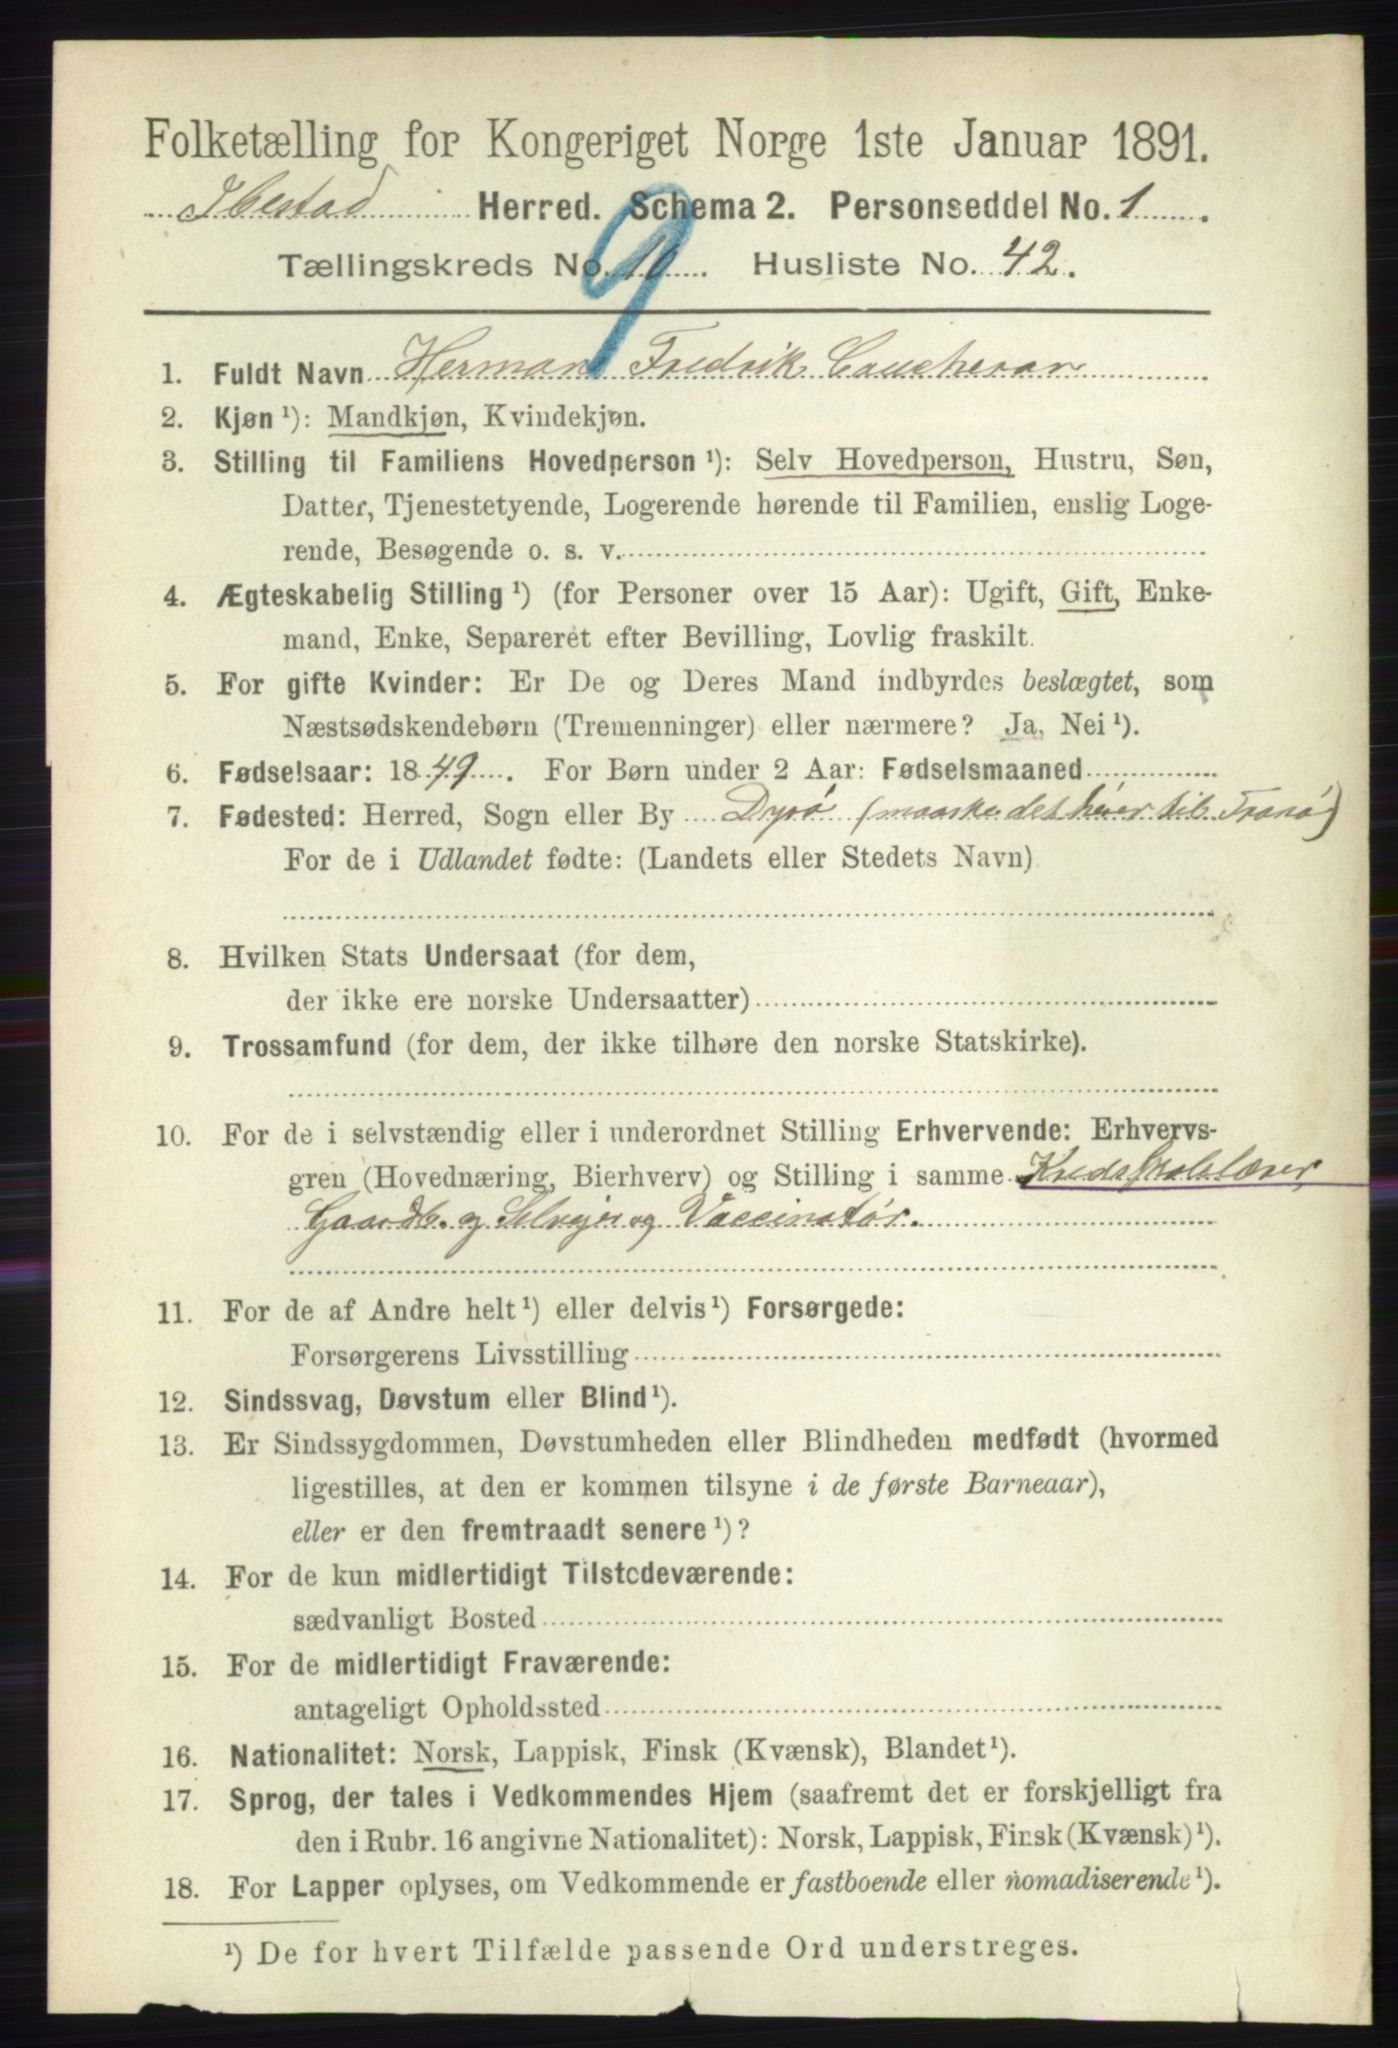 Folketælling for Kongeriget Norge 1ste Januar 1891.
Ibestad Herred. Schema 2. Personseddel No. 1.
9
Tællingskreds No. 10. Husliste No. 42.
1. Fuldt Navn Herman Fredrik Caucheron
2. Kjøn ¹): Mandkjøn, Kvindekjøn.
3. Stilling til Familiens Hovedperson ¹): Selv Hovedperson, Hustru, Søn,
Datter, Tjenestetyende, Logerende hørende til Familien, enslig Loge-
rende, Besøgende o. s. v.
4. Ægteskabelig Stilling ¹) (for Personer over 15 Aar): Ugift, Gift, Enke-
mand, Enke, Separeret efter Bevilling, Lovlig fraskilt.
5. For gifte Kvinder: Er De og Deres Mand indbyrdes beslægtet, som
Næstsødskendebørn (Tremenninger) eller nærmere? Ja, Nei ¹).
6. Fødselsaar: 1849. For Børn under 2 Aar: Fødselsmaaned
7. Fødested: Herred, Sogn eller By Dyrö (maaske det hører til Tranö)
For de i Udlandet fødte: (Landets eller Stedets Navn)
8. Hvilken Stats Undersaat (for dem,
der ikke ere norske Undersaatter)
9. Trossamfund (for dem, der ikke tilhøre den norske Statskirke).
10. For de i selvstændig eller i underordnet Stilling Erhvervende: Erhvervs-
gren (Hovednæring, Bierhverv) og Stilling i samme Kredsskolelærer,
Gaardb. og Selvejer og Vaccinatör.
11. For de af Andre helt ¹) eller delvis ¹) Forsørgede:
Forsørgerens Livsstilling
12. Sindssvag, Døvstum eller Blind ¹).
13. Er Sindssygdommen, Døvstumheden eller Blindheden medfødt (hvormed
ligestilles, at den er kommen tilsyne i de første Barneaar),
eller er den fremtraadt senere ¹)?
14. For de kun midlertidigt Tilstedeværende:
sædvanligt Bosted
15. For de midlertidigt Fraværende:
antageligt Opholdssted
16. Nationalitet: Norsk, Lappisk, Finsk (Kvænsk), Blandet ¹).
17. Sprog, der tales i Vedkommendes Hjem (saafremt det er forskjelligt fra
den i Rubr. 16 angivne Nationalitet): Norsk, Lappisk, Finsk (Kvænsk) ¹).
18. For Lapper oplyses, om Vedkommende er fastboende eller nomadiserende ¹).
¹) De for hvert Tilfælde passende Ord understreges.